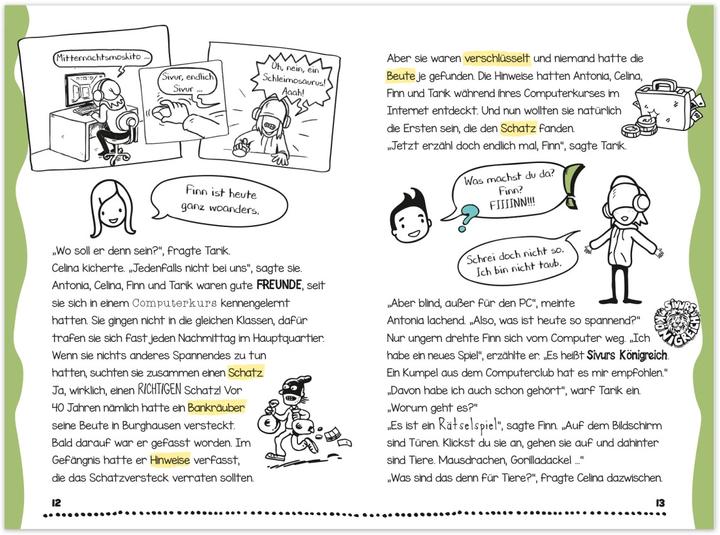 Mitternachtsmoskito ...
Sivur, endlich
Sivur ...
Oh, nein, ein
Schleimosaurus!
Aaah!
Finn ist heute
ganz woanders.
„Wo soll er denn sein?“, fragte Tarik.
Celina kicherte. „Jedenfalls nicht bei uns“, sagte sie.
Antonia, Celina, Finn und Tarik waren gute FREUNDE, seit
sie sich in einem Computerkurs kennengelernt
hatten. Sie gingen nicht in die gleichen Klassen, dafür
trafen sie sich fast jeden Nachmittag im Hauptquartier.
Wenn sie nichts anderes Spannendes zu tun
hatten, suchten sie zusammen einen Schatz.
Ja, wirklich, einen RICHTIGEN Schatz! Vor
40 Jahren nämlich hatte ein Bankräuber
seine Beute in Burghausen versteckt.
Bald darauf war er gefasst worden. Im
Gefängnis hatte er Hinweise verfasst,
die das Schatzversteck verraten sollten.
12
Aber sie waren verschlüsselt und niemand hatte die
Beute je gefunden. Die Hinweise hatten Antonia, Celina,
Finn und Tarik während ihres Computerkurses im
Internet entdeckt. Und nun wollten sie natürlich
die Ersten sein, die den Schatz fanden.
„Jetzt erzähl doch endlich mal, Finn“, sagte Tarik.
Was machst du da?
Finn?
FIIIINN!!!
?
!
Schrei doch nicht so.
Ich bin nicht taub.
„Aber blind, außer für den PC“, meinte
Antonia lachend. „Also, was ist heute so spannend?“
Nur ungern drehte Finn sich vom Computer weg. „Ich
habe ein neues Spiel“, erzählte er. „Es heißt Sivurs Königreich.
Ein Kumpel aus dem Computerclub hat es mir empfohlen.“
SIVURS KÖNIGREICH
„Davon habe ich auch schon gehört“, warf Tarik ein.
„Worum geht es?“
„Es ist ein Rätselspiel“, sagte Finn. „Auf dem Bildschirm
sind Türen. Klickst du sie an, gehen sie auf und dahinter
sind Tiere. Mausdrachen, Gorilladackel ...“
„Was sind das denn für Tiere?“, fragte Celina dazwischen.
13